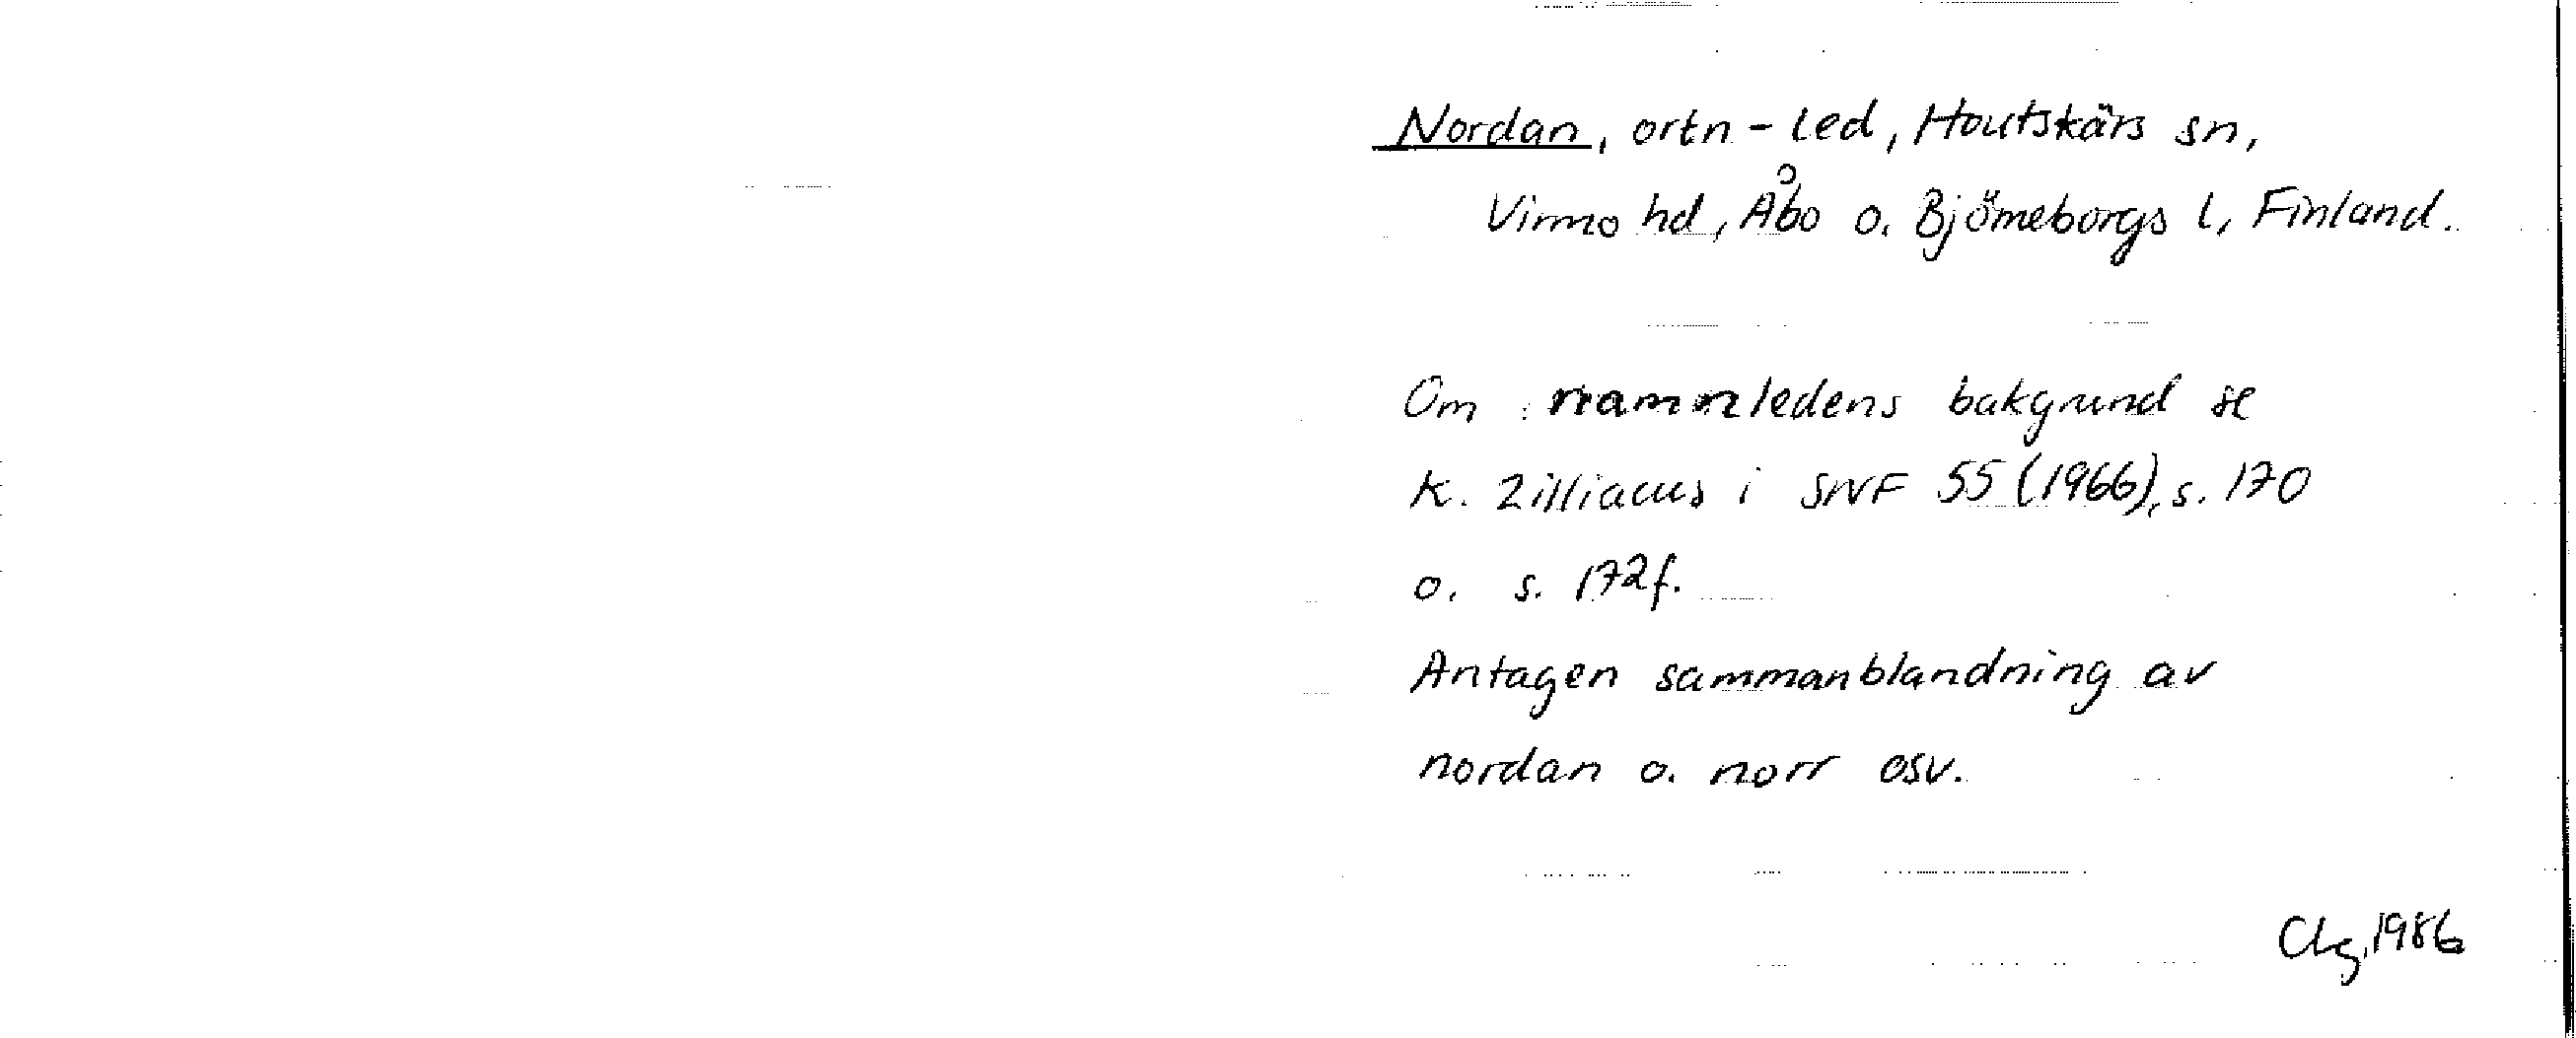 Nordan, ortn-led, Houtskärs sn,
Virmo hd, Åbo o. Björneborgs l, Finland.
Om namnledens bakgrund se
K. Zilliacus i SNF 55 (1966), s. 170
o. s. 172f.
Antagen sammanblandning av
nordan o. norr osv.
CLg, 1986